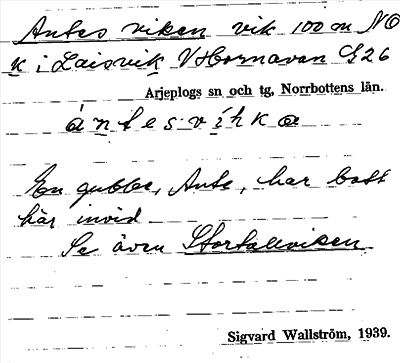 Antes viken vik 100 m NO
k i Laisvik V Hornavan G26
Arjeplogs sn och tg, Norrbottens län.
ántesvíhka
En gubbe, Ante, har bott
här invid
Se även Stortallviken
Sigvard Wallström, 1939.